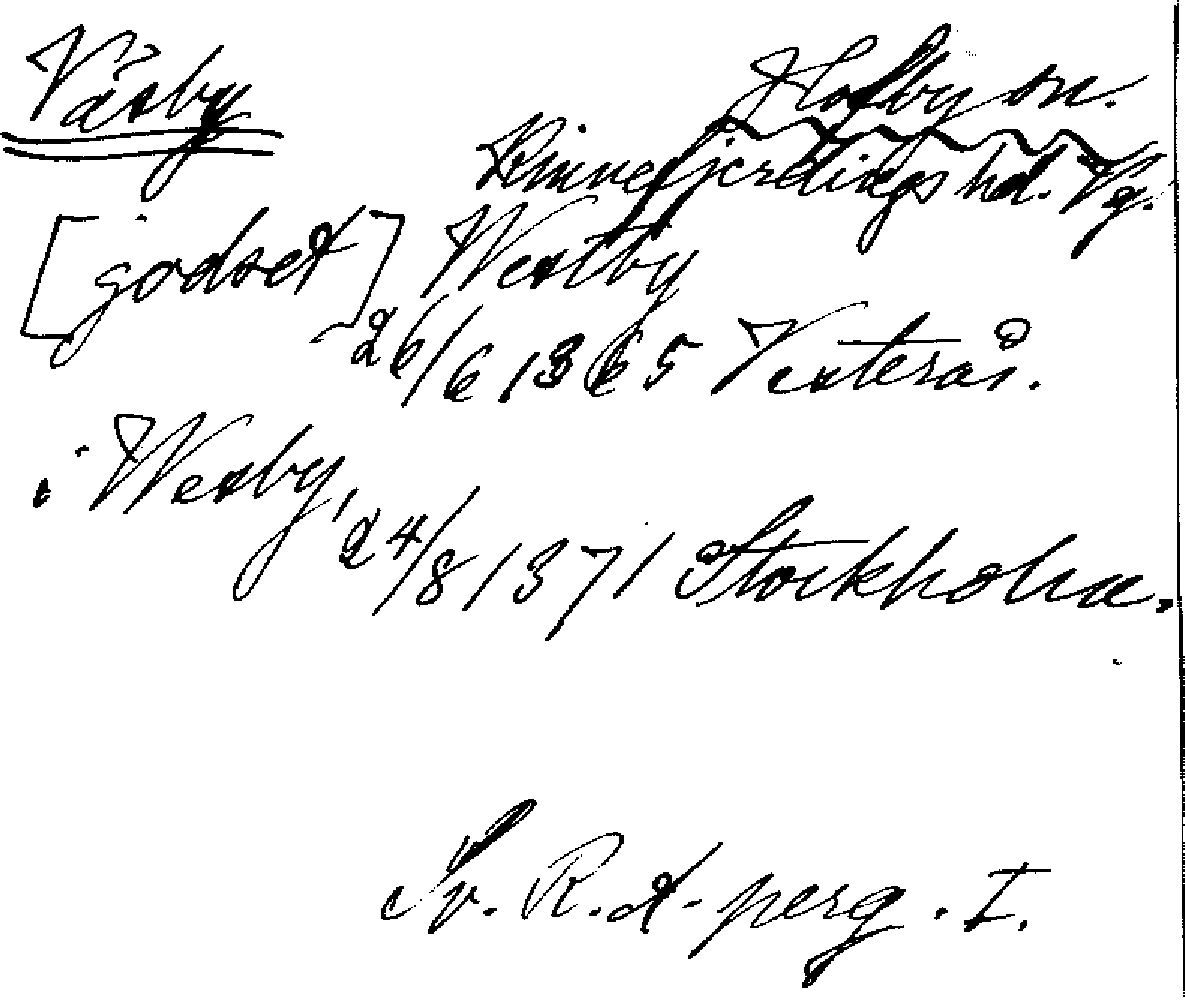 Väsby
Hofby sn.
Kinnefjerdings hd. Vg.
[godset] Westby
26/6 1365 Vesterås.
i Wesby, 24/8 1371 Stockholm.
Sv. R.d.-perg. I.